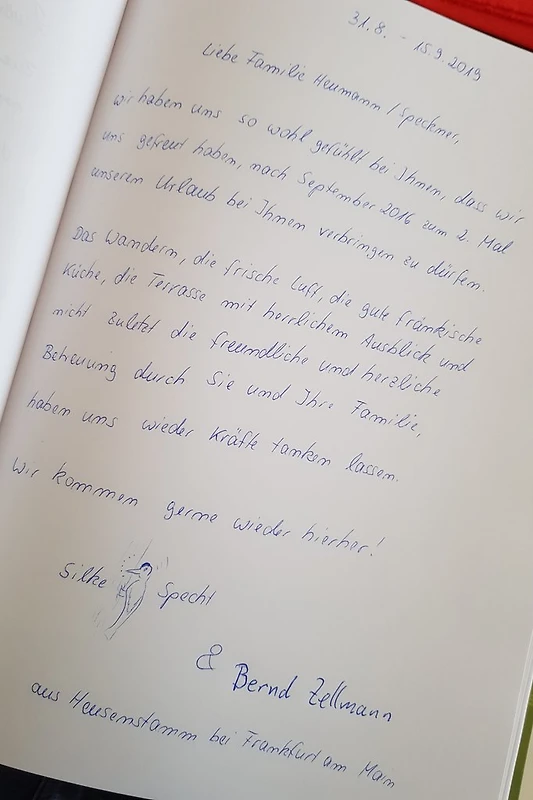 31.8. - 15.9.2019
Liebe Familie Heumann / Speckner,
wir haben uns so wohl gefühlt bei Ihnen, dass wir
uns gefreut haben, nach September 2016 zum 2. Mal
unseren Urlaub bei Ihnen verbringen zu dürfen.
Das Wandern, die frische Luft, die gute fränkische
Küche, die Terrasse mit herrlichem Ausblick und
nicht zuletzt die freundliche und herzliche
Betreuung durch Sie und Ihre Familie,
haben uns wieder Kräfte tanken lassen.
Wir kommen gerne wieder hierher!
Silke Specht
& Bernd Zellmann
aus Heusenstamm bei Frankfurt am Main